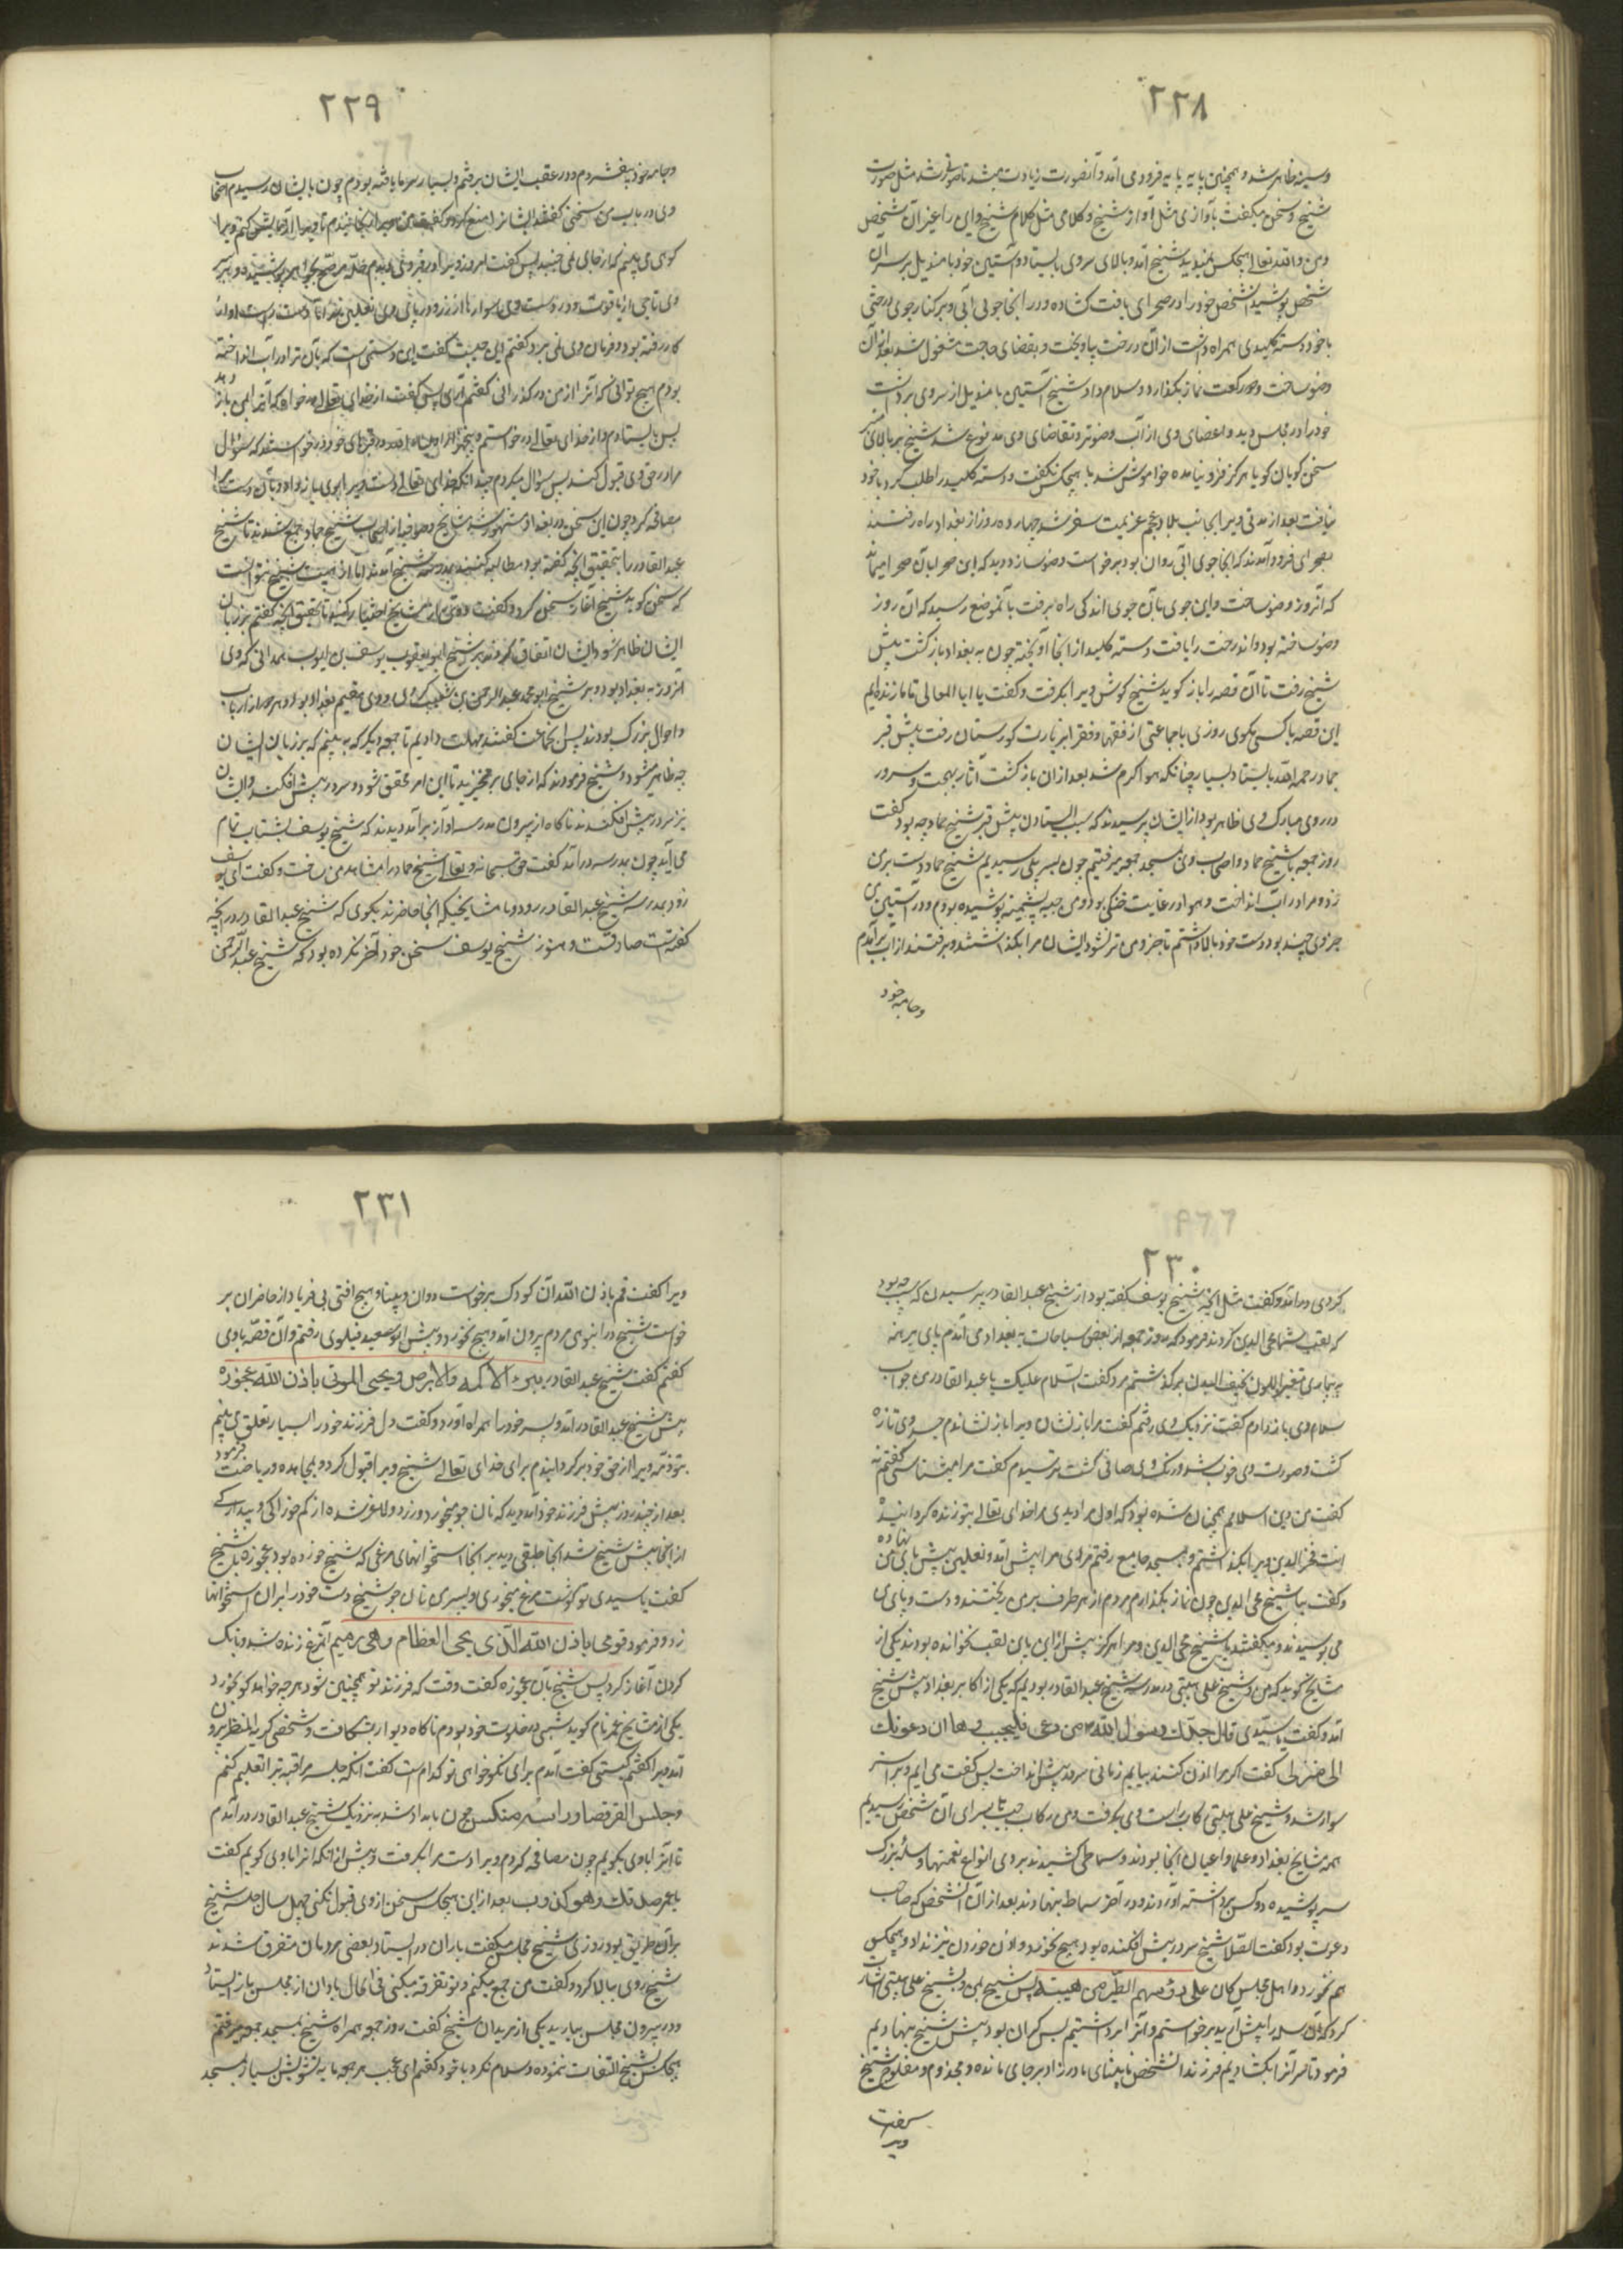 ٢٢٨
وسینه ظاهر شد و همچنین پایه پایه فرود می آمد و آنصورت زیادت میشد تا صورتی شد مثل صورت
شیخ و سخن میگفت بآوازی مثل آواز شیخ و کلامی مثل کلام شیخ و این را غیر آن شخص
ومن والله تعالی هیچکس نمیدید شیخ آمد و بالای سر وی بایستاد و آستین خود یا مندیل بر سر آن
شخص پوشید آنشخص خود را در صحرای یافت کشاده و در آنجا جوی آبی و بر کنار جوی درختی
با خود دسته کلیدی همراه داشت از آن درخت بیاویخت و بقضای حاجت مشغول شد بعد از آن
وضو ساخت و دو رکعت نماز بگذارد و سلام داد شیخ آستین یا مندیل از سر وی برداشت
خود را در مجلس دید و اعضای وی از آب وضو تر و تقاضای وی مدفوع شد شیخ بر بالای منبر
سخن گویان گویا هرگز فرو نیامده خواموش شد با هیچکس نگفت و دسته کلید را طلب کرد با خود
نیافت بعد از مدتی ویرا بجانب بلاد عجم عزیمت سفر شد چهارده روز از بغداد راه رفتند
بصحرای فرود آمدند که آنجا جوی آبی روان بود برخواست وضو سازد دید که این صحرا بآن صحرا میماند
که آنروز وضو ساخت و این جوی بآن جوی اندکی راه برفت بآنموضع رسید که آن روز
وضو ساخته بود و اندرخت را یافت دسته کلید از آنجا آویخته چون به بغداد باز گشت پیش
شیخ رفت تا آن قصه را باز گوید شیخ گوش ویرا بگرفت و گفت یا ابا المعالی تا ما زنده ایم
این قصه با کسی نگوی روزی با جماعتی از فقها و فقرا بزیارت گورستان رفت پیش قبر
حماد رحمه الله بایستاد بسیار چنانکه هوا گرم شد بعد از آن باز گشت آثار بهجت و سرور
در روی مبارک وی ظاهر بود از ایشان پرسیدند که سبب ایستادن پیش قبر شیخ حماد چه بود گفت
روز جمعه با شیخ حماد و اصحاب وی بمسجد جمعه میرفتیم چون بسر پلی رسیدیم شیخ حماد دست بر من
زد و مرا در آب انداخت و هوا در غایت خنکی بود و من جبه پشمینه پوشیده بودم و در آستین من
جزوی چند بود دست خود بالا داشتم تا جزو من تر نشود ایشان مرا بگذاشتند و برفتند از آب بر آمدم
وجامه خود
٢٢٩
وجامه خود بفشردم و در عقب ایشان برفتم و بسیار سرما یافته بودم چون بایشان رسیدم اصحاب
وی در باب من سخنی گفتند ایشانرا منع کرد و گفت من ویرا برنجانیدم تا ویرا آزمایش کنم ویرا
کوهی می بینم که از جای نمی جنبد پس گفت امروز ویرا در قبر وی دیدم حله مرصع بجواهر پوشیده و بر سر
وی تاجی از یاقوت و در دست وی سوارها از زر و در پای وی نعلین زر اما دست راست او از
کار رفته بود و فرمان وی نمی برد گفتم این چیست گفت این دستی است که بآن ترا در آب انداخته
بودم هیچ توانی که آنرا از من در گذرانی گفتم آری پس گفت از خدای تعالی در خواه که آنرا بمن باز دهد
پس بایستادم و از خدای تعالی در خواستم و پنجهزار اولیاء الله در قبرهای خود در خواستند که سؤال
مرا در حق وی قبول کند پس سؤال میکردم چندانکه خدای تعالی دست ویرا بوی باز داد و بآن دست با من
مصافحه کرد چون این سخن در بغداد مشهور شد مشایخ و صوفیه از اصحاب شیخ حماد جمع شدند تا شیخ
عبدالقادر را بتحقیق آنچه گفته بود مطالبه کنند بمدرسه شیخ آمدند اما از هیبت شیخ نتوانست
که سخن گوید شیخ آغاز سخن کرد و گفت دو تن از مشایخ اختیار کنید تا تحقیق آنچه گفتم بر زبان
ایشان ظاهر شود ایشان اتفاق کردند بر شیخ ابو یعقوب یوسف بن ایوب همدانی که وی
آنروز به بغداد بود و بر شیخ ابو محمد عبدالرحمن بن شعیب کردی و وی مقیم بغداد بود و هر دو از ارباب
و احوال بزرگ بودند پس آنجماعت گفتند مهلت دادیم تا جمعه دیگر که به بینیم که بر زبان ایشان
چه ظاهر میشود و شیخ فرمودند که از جای بر مخیزید تا این امر محقق شود و سر در پیش افکند و ایشان
نیز سر در پیش افکندند ناگاه از بیرون مدرسه آواز بر آمد دیدند که شیخ یوسف بشتاب تمام
می آید چون بمدرسه در آمد گفت حق سبحانه و تعالی شیخ حماد را مشاهد من ساخت و گفت ای یوسف
زود بمدرسه شیخ عبدالقادر رو و با مشایخیکه آنجا حاضرند بگوی که شیخ عبدالقادر در آنچه
گفته است صادقست و هنوز شیخ یوسف سخن خود آخر نکرده بود که شیخ عبدالرحمن
٢٣٠
کردی در آمد و گفت مثل آنچه شیخ یوسف گفته بود از شیخ عبدالقادر پرسیدن که سبب چه بود
که لقب شما محی الدین کردند فرمود که روز جمعه از بعض سیاحات به بغداد می آمدم پای برهنه
به بیماری متغیر اللون نحیف البدن بر گذشتم مرد گفت السلام علیک یا عبدالقادر من جواب
سلام وی باز دادم گفت نزدیک وی رفتم گفت مرا باز نشان ویرا باز نشاندم جسد وی تازه
گشت و صورت وی خوب شد و رنگ وی صافی گشت بترسیدم گفت مرا میشناسی گفتم نه
گفت من دین اسلامم همچنان شده بودم که اول مرا دیدی مرا خدای تعالی بتو زنده گردانید
انت محی الدین ویرا بگذاشتم و بمسجد جامع رفتم مردی مرا پیش آمد و نعلین پیش پای من نهاده
وگفت یا شیخ محی الدین چون نماز بگذاردم مردم از هر طرف بر من ریختند و دست و پای من
می بوسیدند و میگفتند یا شیخ محی الدین و مرا هرگز پیش از این باین لقب نخوانده بودند یکی از
مشایخ گوید که من و شیخ علی هیتی در مدرسه شیخ عبدالقادر بودیم که یکی از اکابر بغداد پیش شیخ
آمد و گفت یا سیدی قال جدّک رسول الله من دعی فلیجیب وها ان دعوتک
الی منزلی گفت اگر مرا اذن کنند بیایم زمانی سر در پیش انداخت پس گفت می آیم و بر استر
سوار شد و شیخ علی هیتی رکاب راست وی بگرفت و من رکاب چپ تا بسرای آن شخص رسیدیم
همه مشایخ بغداد و علما و اعیان آنجا بودند و سماطی کشیدند بر وی انواع نعمتها و سله بزرگ
سر پوشیده دو کس برداشته آوردند و در آخر سماط بنهادند بعد از آن آنشخص که صاحب
دعوت بود گفت الصلا شیخ سر در پیش افکنده بود هیچ نخورد و اذن خوردن نیز نداد و هیچکس
هم نخورد و اهل مجلس کان علی رؤسهم الطیر من هیبته پس شیخ بمن و شیخ علی هیتی اشارت
کرد که آن سله را پیش آرید برخواستیم و آنرا برداشتیم بس گران بود پیش شیخ بنهادیم
فرمود تا سر آنرا بگشادیم فرزند آنشخص نابینای مادرزاد بر جای مانده و مجذوم و مفلوج شیخ
گفت
ویر
٢٣١
ویرا گفت قم باذن الله آن کودک برخواست دوان و بینا و هیچ آفتی نی فریاد از حاضران بر
خواست شیخ در انبوهی مردم بیرون آمد و هیچ نخورد و پیش ابو سعید قیلوی رفتم و آن قصه با وی
گفتم گفت شیخ عبدالقادر یبرئ الاکمه والابرص ویحیی الموتی باذن الله عجوزه
پیش شیخ عبدالقادر آمد و پسر خود را همراه آورد و گفت دل فرزند خود را بسیار تعلق می بینم
بتو ذمه ویرا از حق خود بری گردانیدم برای خدای تعالی شیخ ویرا قبول کرد و بمجاهده و ریاضت فرمود
بعد از چند روز پیش فرزند خود آمد دید که نان جو میخورد و زرد و لاغر شده از کم خوراکی و بیدارے
از آنجا پیش شیخ شد آنجا طبقی دید بر آنجا استخوانهای مرغی که شیخ خورده بود عجوزه با شیخ
گفت یا سیدی تو گوشت مرغ میخوری و پسر من نان جو شیخ دست خود را بر آن استخوانها
زد و فرمود قومی باذن الله الذی یحی العظام وهی رمیم آنمرغ زنده شد و بانگ
کردن آغاز کرد پس شیخ بآن عجوزه گفت وقت که فرزند تو همچنین شود هرچه خواهد گو بخورد
یکی از مشایخ عمر نام گوید شبی در خلوت خود بودم ناگاه دیوار بشگافت و شخصی کریه المنظر بیرون
آمد ویرا گفتم کیستی گفت آمدم برای نکو خواهی تو کدامست گفت آنکه جلسه مراقبه ترا تعلیم کنم
وجلس القرفصا وراسه منکس چون بامداد شد بنزدیک شیخ عبدالقادر در آمدم
تا آنرا با وی بگویم چون مصافحه کردم ویرا دست مرا بگرفت و پیش از آنکه آنرا با وی گویم گفت
یا عمر صدقک وهو کذوب بعد از این هیچکس سخن از وی قبول نکنی چهل سال جلسه شیخ
بر آن طریق بود روزی شیخ مجلس میگفت باران در ایستاد بعضی مردمان متفرق شدند
شیخ روی ببالا کرد و گفت من جمع میکنم و تو تفرقه میکنی فی الحال باران از مجلس باز ایستاد
و در بیرون مجلس میبارید یکی از مریدان شیخ گفت روز جمعه همراه شیخ بمسجد جمعه میرفتم
هیچکس بشیخ التفات ننموده و سلام نکرد با خود گفتم ای عجب هر جمعه ما به تشویش بسیار بمسجد